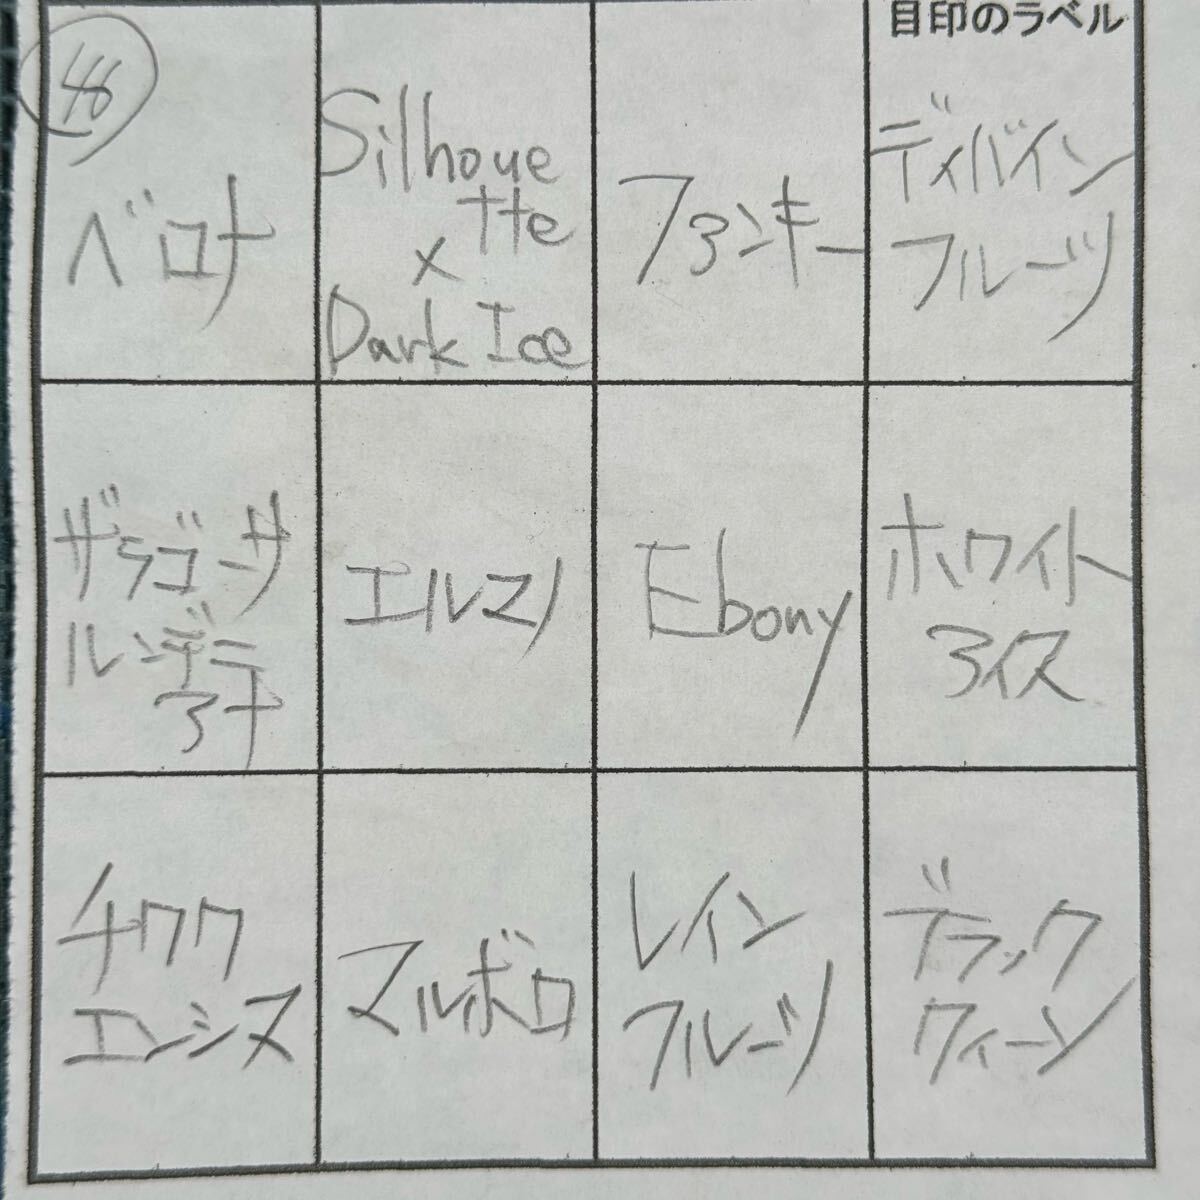 目印のラベル
48
ベロナ
Silhoue
tte
×
Dark Ice
ファンキー
ディバイン
フルーツ
ザラゴーサ
ルンデラ
アナ
エルマリ
Ebony
ホワイト
アイス
チワワ
エンシヌ
マルボロ
レイン
フルーツ
ブラック
クィーン